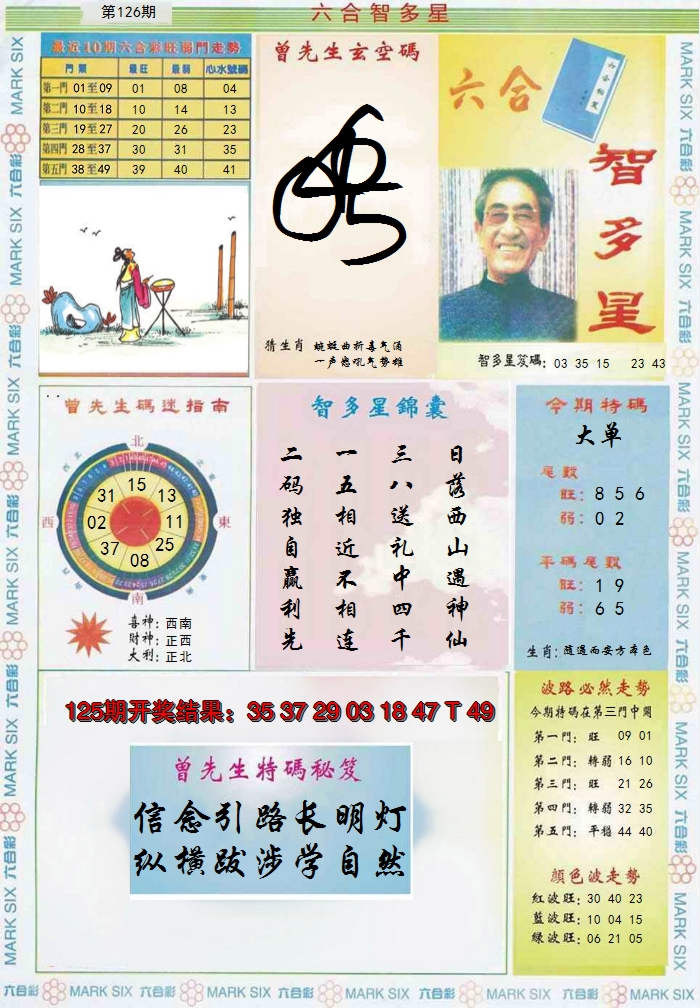 第126期
六合智多星
最近10期六合彩旺弱門走勢
門類 最旺 最弱 心水號碼
第一門 01至09 01 08 04
第二門 10至18 10 14 13
第三門 19至27 20 26 23
第四門 28至37 30 31 35
第五門 38至49 39 40 41
曾先生玄空碼
猜生肖 蜿蜒曲折喜气涌
一声怒吼气势雄
六合
智多星
智多星笈碼：03 35 15 23 43
曾先生碼迷指南
北
西
東
南
15
13
11
25
08
37
02
31
喜神：西南
財神：正西
大利：正北
智多星錦囊
日落西山遇神仙
三八送礼中四千
一五相近不相连
二码独自赢利先
今期特碼
大单
尾數
旺：8 5 6
弱：0 2
平碼尾數
旺：1 9
弱：6 5
生肖：随遇而安方本色
125期开奖结果：35 37 29 03 18 47 T 49
曾先生特碼秘笈
信念引路长明灯
纵横跋涉学自然
波路必然走勢
今期特碼在第三門中開
第一門：旺 09 01
第二門：轉弱 16 10
第三門：旺 21 26
第四門：轉弱 32 35
第五門：平穩 44 40
顏色波走勢
紅波旺：30 40 23
藍波旺：10 04 15
綠波旺：06 21 05
六合彩 MARK SIX 六合彩 MARK SIX 六合彩 MARK SIX 六合彩 MARK SIX 六合彩